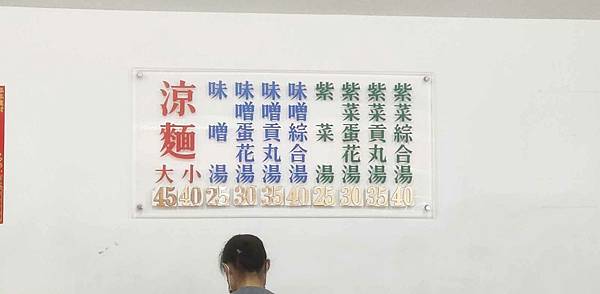 涼麵
大 小
45 40
味噌湯
25
味噌蛋花湯
30
味噌貢丸湯
35
味噌綜合湯
40
紫菜湯
25
紫菜蛋花湯
30
紫菜貢丸湯
35
紫菜綜合湯
40